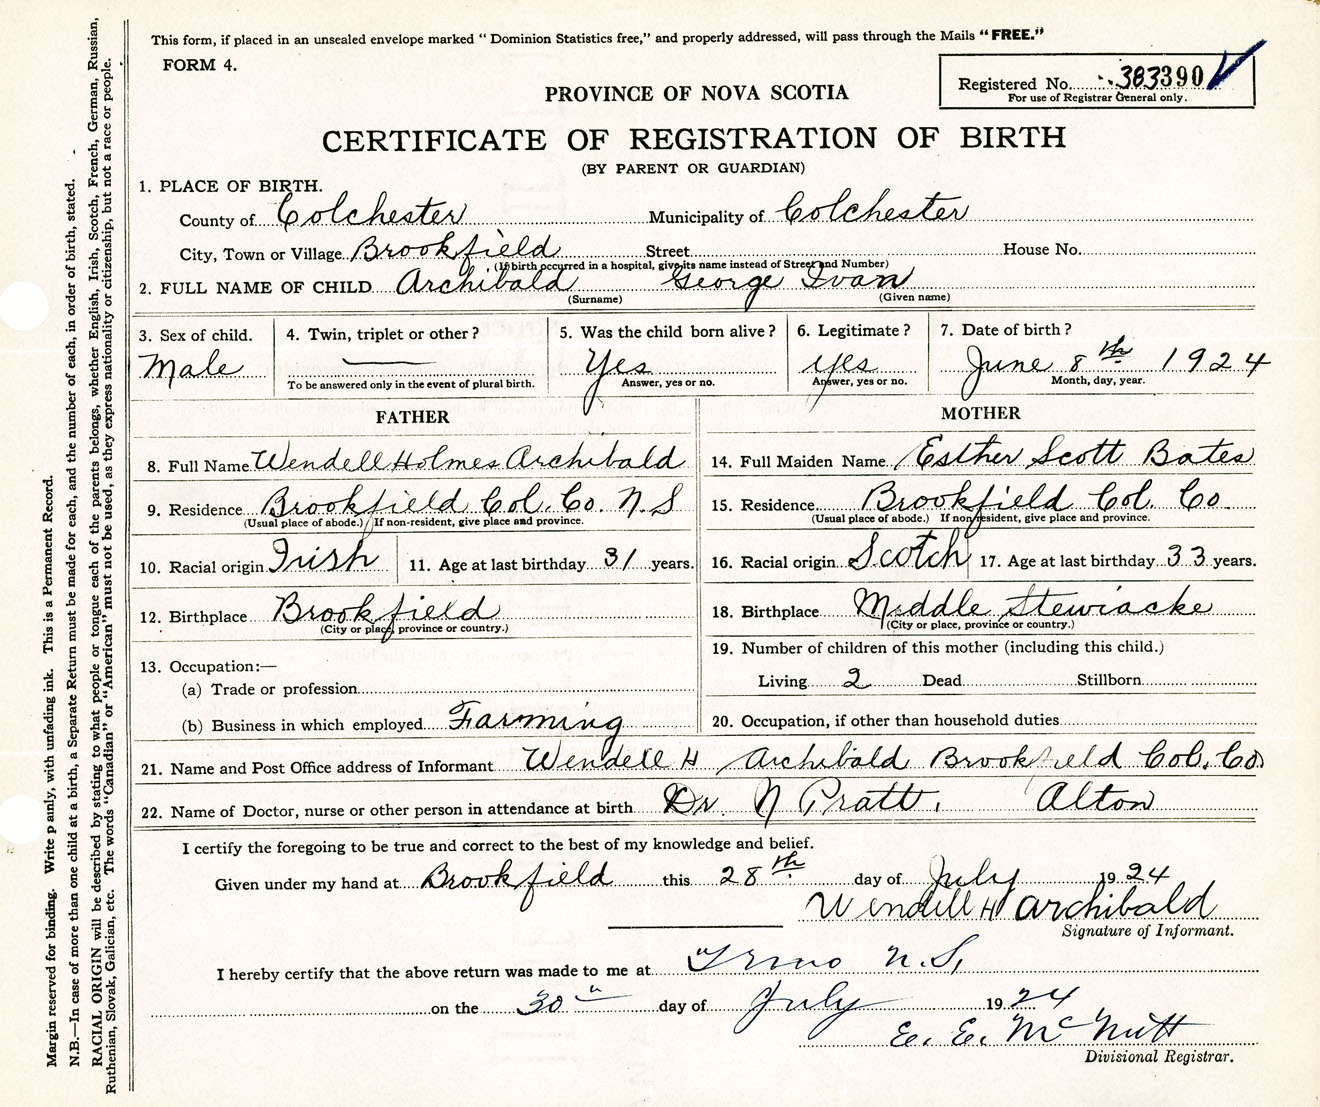 This form, if placed in an unsealed envelope marked “ Dominion Statistics free,” and properly addressed, will pass through the Mails “ FREE.”
FORM 4.
Registered No. 383390
For use of Registrar General only.
PROVINCE OF NOVA SCOTIA
CERTIFICATE OF REGISTRATION OF BIRTH
(BY PARENT OR GUARDIAN)
1. PLACE OF BIRTH.
County of Colchester Municipality of Colchester
City, Town or Village Brookfield Street House No.
(If birth occurred in a hospital, give its name instead of Street and Number)
2. FULL NAME OF CHILD Archibald George Ivan
(Surname) (Given name)
3. Sex of child. 4. Twin, triplet or other ? 5. Was the child born alive ? 6. Legitimate ? 7. Date of birth ?
Male — Yes yes June 8th 1924
To be answered only in the event of plural birth. Answer, yes or no. Answer, yes or no. Month, day, year.
FATHER MOTHER
8. Full Name Wendell Holmes Archibald 14. Full Maiden Name Esther Scott Bates
9. Residence Brookfield Col. Co. N.S 15. Residence Brookfield Col. Co
(Usual place of abode.) If non-resident, give place and province. (Usual place of abode.) If non-resident, give place and province.
10. Racial origin Irish 11. Age at last birthday 31 years. 16. Racial origin Scotch 17. Age at last birthday 33 years.
12. Birthplace Brookfield 18. Birthplace Middle Stewiacke
(City or place, province or country.) (City or place, province or country.)
13. Occupation:— 19. Number of children of this mother (including this child.)
(a) Trade or profession Living 2 Dead Stillborn
(b) Business in which employed Farming 20. Occupation, if other than household duties
21. Name and Post Office address of Informant Wendell H Archibald Brookfield Col. Co
22. Name of Doctor, nurse or other person in attendance at birth Dr N Pratt. Alton
I certify the foregoing to be true and correct to the best of my knowledge and belief.
Given under my hand at Brookfield this 28th day of July 1924
Wendell H Archibald
Signature of Informant.
I hereby certify that the above return was made to me at Truro N.S,
on the 30" day of July 1924
E. E. McNutt
Divisional Registrar.
Margin reserved for binding. Write p ainly, with unfading ink. This is a Permanent Record.
N.B.—In case of more than one child at a birth, a Separate Return must be made for each, and the number of each, in order of birth, stated.
RACIAL ORIGIN will be described by stating to what people or tongue each of the parents belongs, whether English, Irish, Scotch, French, German, Russian,
Ruthenian, Slovak, Galician, etc. The words “Canadian” or “American” must not be used, as they express nationality or citizenship, but not a race or people.